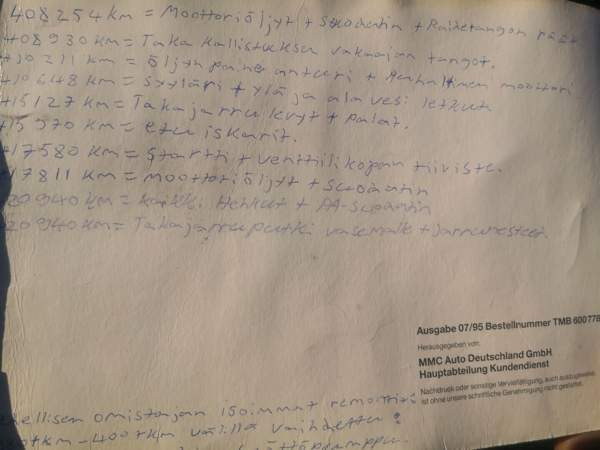 408254 km = Moottoriöljyt + Suodatin + Raidetangon päät
408930 km = Taka kallistuksen vakaajan tangot.
410211 km = öljyn paine anturi + Puhaltimen moottori
410648 km = syyläri + ylä ja ala vesi letkut
415127 km = Takajarrukyt + Palat.
415970 km = etu iskarit.
417580 km = Startti + venttiilikopan tiiviste.
417811 km = moottoriöljyt + Suodatin
420940 km = Kaikki Hehkut + PA-Suodatin
420940 km = Takajarruputki vasemalle + Jarrunesteet
Ausgabe 07/95 Bestellnummer TMB 600778
Herausgegeben von:
MMC Auto Deutschland GmbH
Hauptabteilung Kundendienst
Nachdruck oder sonstige Vervielfältigung, auch auszugsweise,
ist ohne unsere schriftliche Genehmigung nicht gestattet.
ellisen omistajan isoimmat remontit
km - 400tkm välillä vaihdettu: